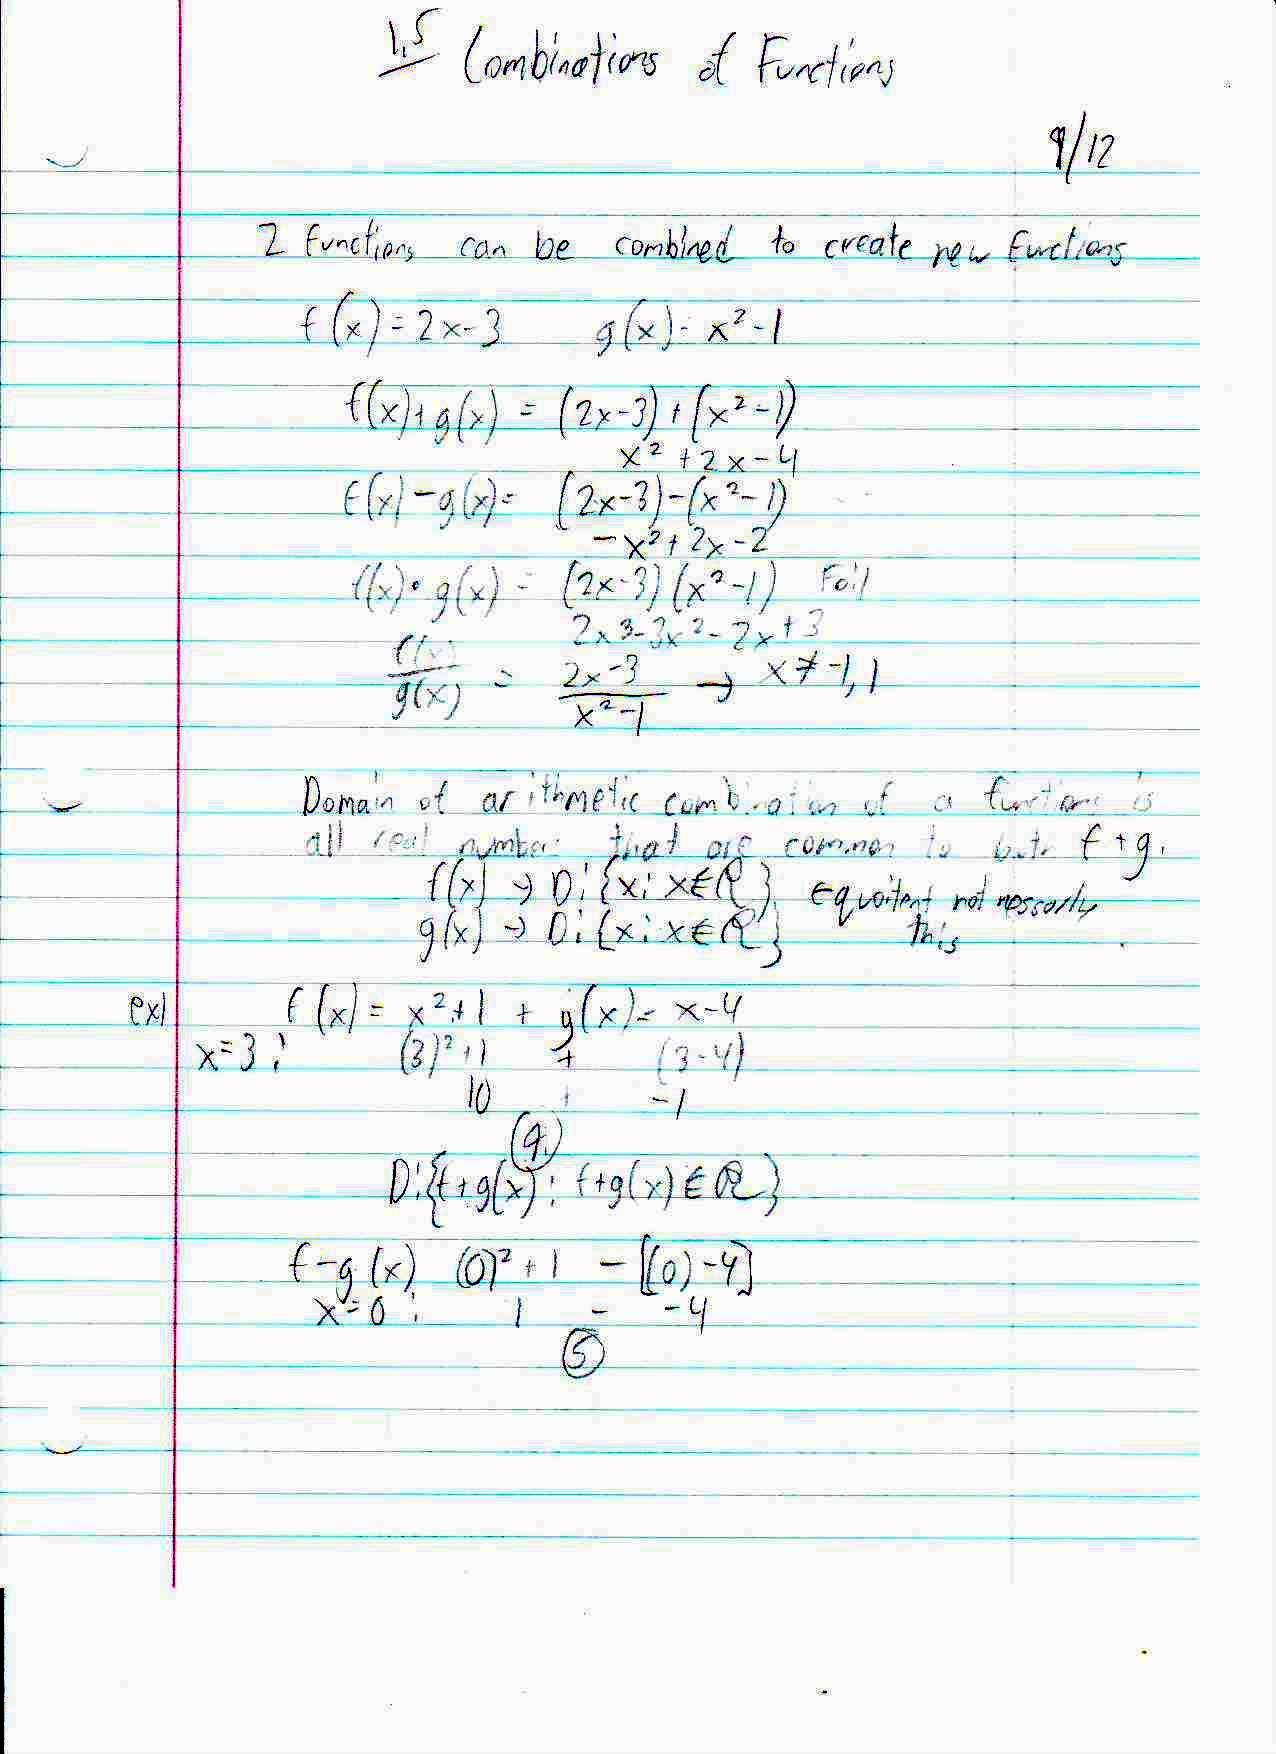 1.5 Combinations of Functions
9/12
2 functions can be combined to create new functions
f(x) = 2x-3   g(x) = x²-1
f(x)+g(x) = (2x-3)+(x²-1)
x²+2x-4
f(x)-g(x) = (2x-3)-(x²-1)
-x²+2x-2
f(x)•g(x) = (2x-3)(x²-1) Foil
2x³-3x²-2x+3
f(x)/g(x) = 2x-3/x²-1 → x≠-1,1
Domain of arithmetic combination of a functions is
all real numbers that are common to both f+g.
f(x) → D:{x:x∈ℝ} Equvitent not nessarly
g(x) → D:{x:x∈ℝ} this
ex1 f(x) = x²+1 + g(x) = x-4
x=3: (3)²+1 + (3-4)
10 + -1
9.
D:{f+g(x): f+g(x)∈ℝ}
f-g(x) (0)²+1 - [(0)-4]
x=0: 1 - -4
5